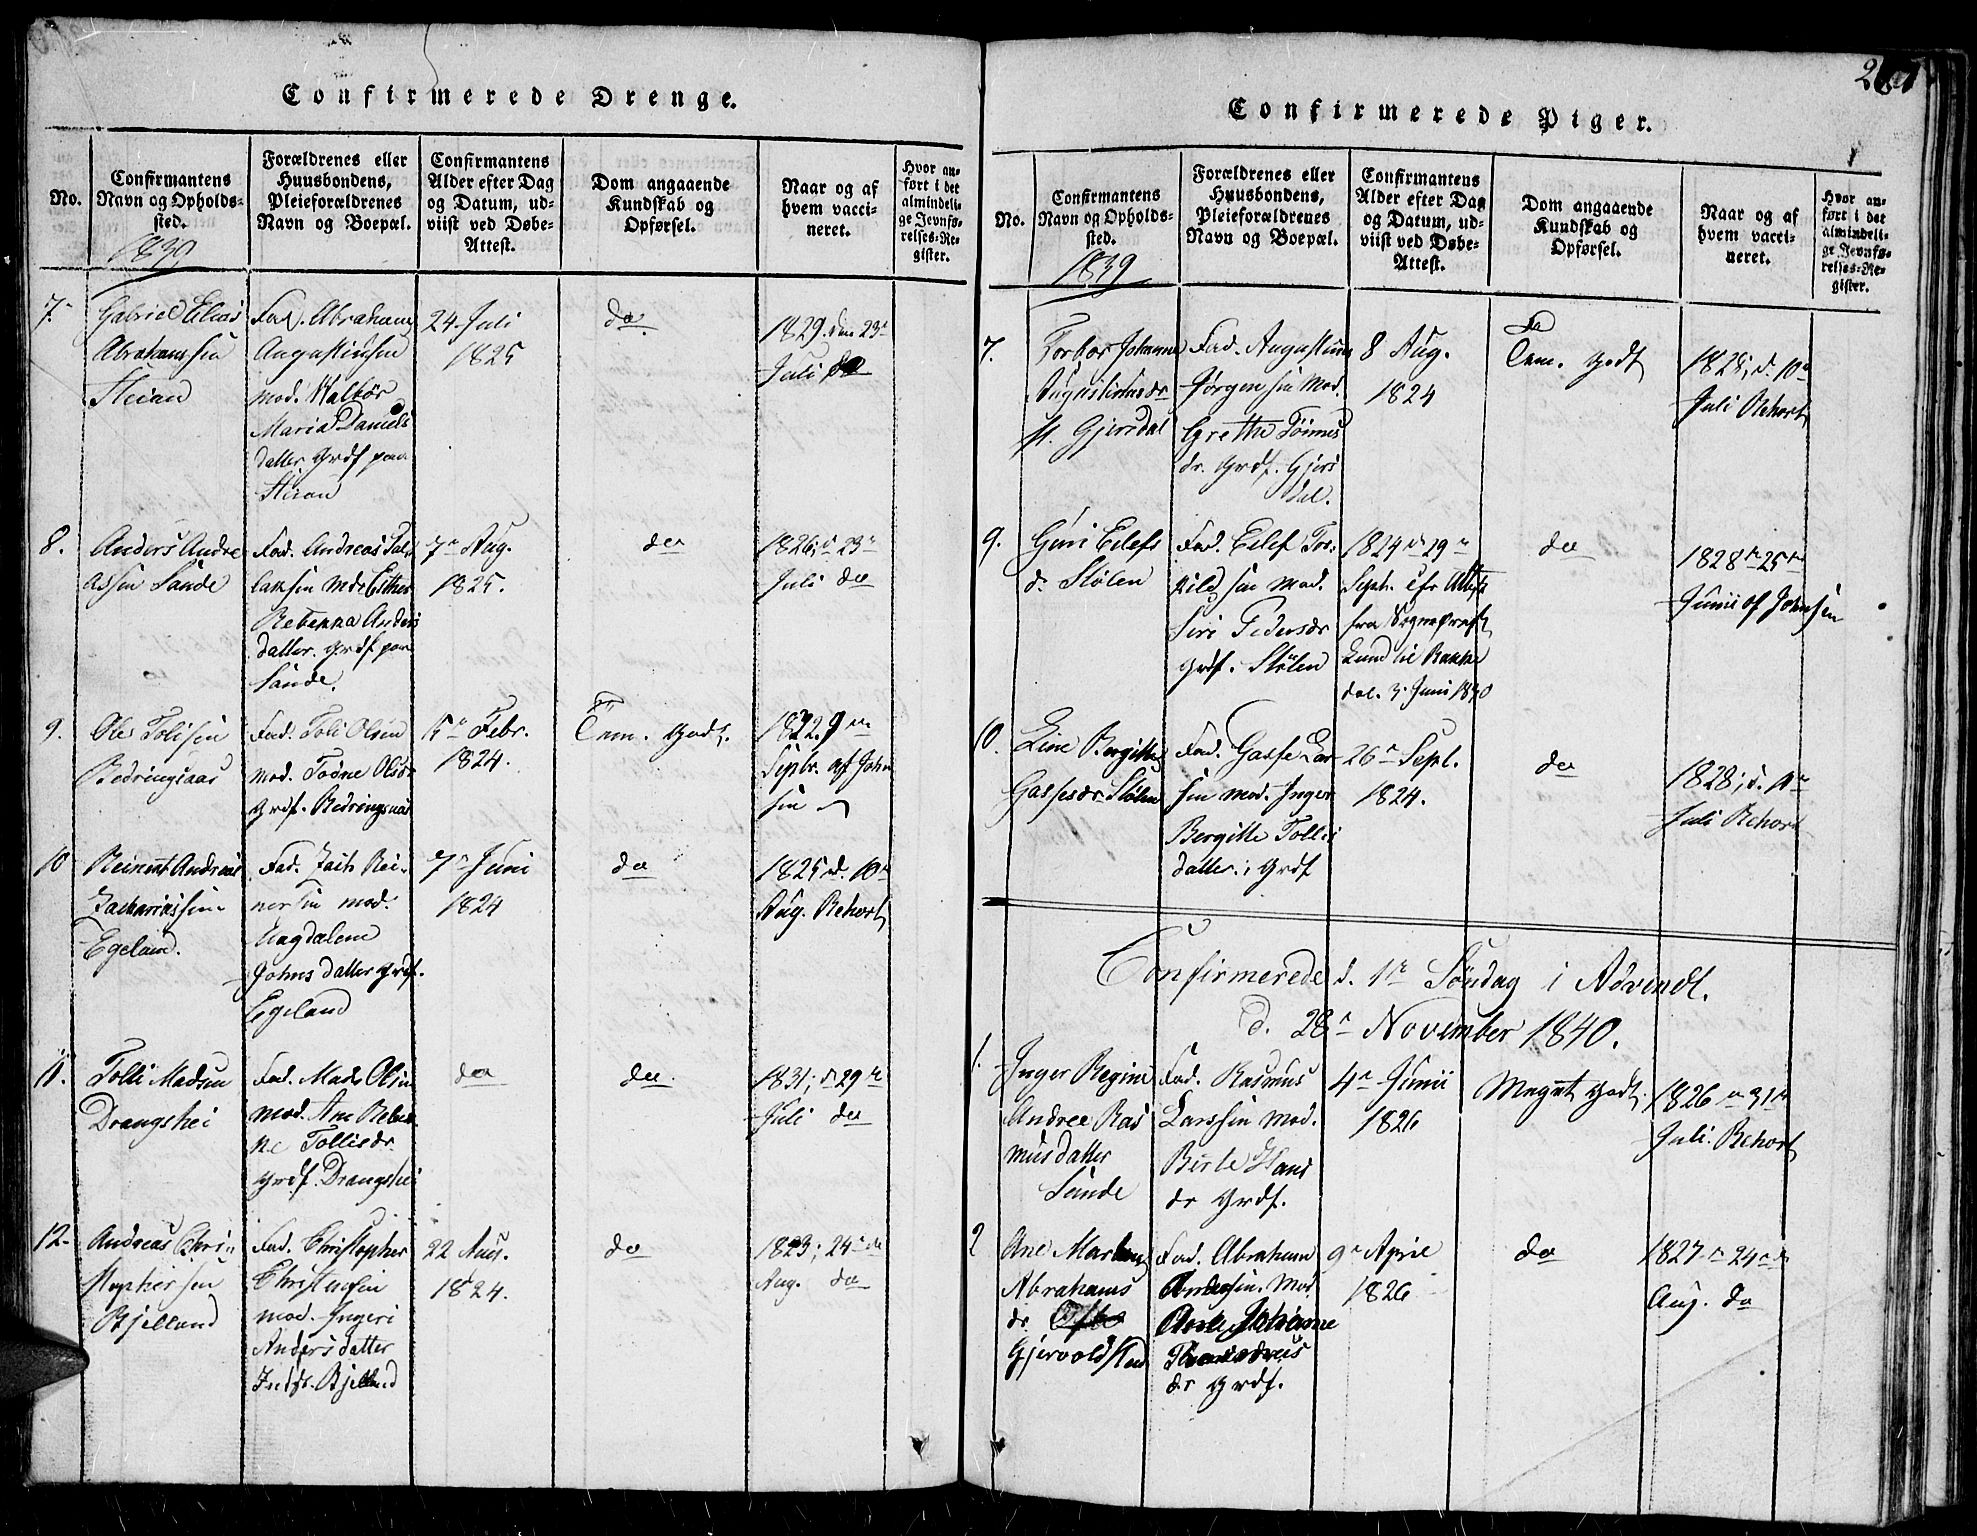 Confirmerede Drenge.
No.
Confirmantens
Navn og Opholds-
sted.
1839
Forældrenes eller
Huusbondens,
Pleieforældrenes
Navn og Boepæl.
Confirmantens
Alder efter Dag
og Datum, ud-
viist ved Døbe-
Attest.
Dom angaaende
Kundskab og
Opførsel.
Naar og af
hvem vacci-
neret.
Hvor an-
ført i det
almindeli-
ge Jevnfø-
relses-Re-
gister.
7.
Gabriel Elias
Abrahamsen
Steian
Fad. Abraham
Augustinsen
mod. Malbør
Maria Daniels
datter Grdf paa
Steian
24 Juli
1825
do
1829. den 23
Juli do
8.
Anders Andre
assen Sande
Fad. Andreas
mod. Esther
Rebekka Anders
datter. Grdf paa
Sande.
7 Aug.
1825.
do
1826; d 23
Juli do
9.
Ole Tolisen
Fad. Toli Olsen
mod. Todne Olsdr
Grdf.
15 Febr.
1824.
Tem. Godt.
Septr. af John
sen
10
Reinert Andreas
Zachariassen
Egeland.
Fad. Zach. Rei-
nersen mod.
Magdalene
Johns datter Grdf.
Egeland
7 Juni
1824
do
1825 d. 10
Aug. Rehort
11.
Tolli Madsen
Drangshei
Fad. Mads Olsen
mod. Ane Rebek
ke Tollisdr
Grdf. Drangshei
do
do.
1831; d 29
Juli do
12.
Andreas Chri-
stophersen
Bjelland
Fad. Christopher
Christensen
mod. Ingeri
Andersdatter
Bjelland
22 Aug.
1824.
do
1823; 24
Aug. do
Confirmerede Piger.
No.
Confirmantens
Navn og Opholds-
sted.
1839
Forældrenes eller
Huusbondens,
Pleieforældrenes
Navn og Boepæl.
Confirmantens
Alder efter Dag
og Datum, ud-
viist ved Døbe-
Attest.
Dom angaaende
Kundskab og
Opførsel.
Naar og af
hvem vacci-
neret.
Hvor an-
ført i det
almindeli-
ge Jevnfø-
relses-Re-
gister.
7.
Torbor Johanne
Augustinusdr
Gjersdal
Fad. Augustinus
Jørgensen Mod.
Grethe Tønnes
dr. Grdf. Gjers
dal.
8 Aug.
1824
Tem. Godt
1828; d. 10
Juli Rehort
9.
Guri Eilefs
dr Stølen
Fad. Eilef Tor-
kildsen Mod.
Siri Pedersdr
Grdf. Stølen
1824 d 29
Septr. cfr Attest
fra Sognepræst
Lund til Bakke
dat. 3 Juni 1840
do
1828 25
Junii af Johnsen
10.
Line Bergitte
Gasses dr. Stølen
Fad. Gasse Lar
sen mod. Inger
Bergitte Tollis
datter; Grdf
26 Sept.
1824.
do
1828; d. 10
Juli Rehort
Confirmerede d. 1 Søndag i Advendt.
d. 28 November 1840.
1.
Inger Regine
Andree Ras
musdatter
Sande
Fad. Rasmus
Larssen Mod.
Berte Hans
dr Grdf.
4 Junii
1826
Meget Godt.
1826 31
Juli. Rehort
2
Ane
Abrahams
dr
Gjervoldstad
Fad. Abraham
Andersen. Mod
dr Grdf.
9 April
1826
do
1827 24
Aug. do